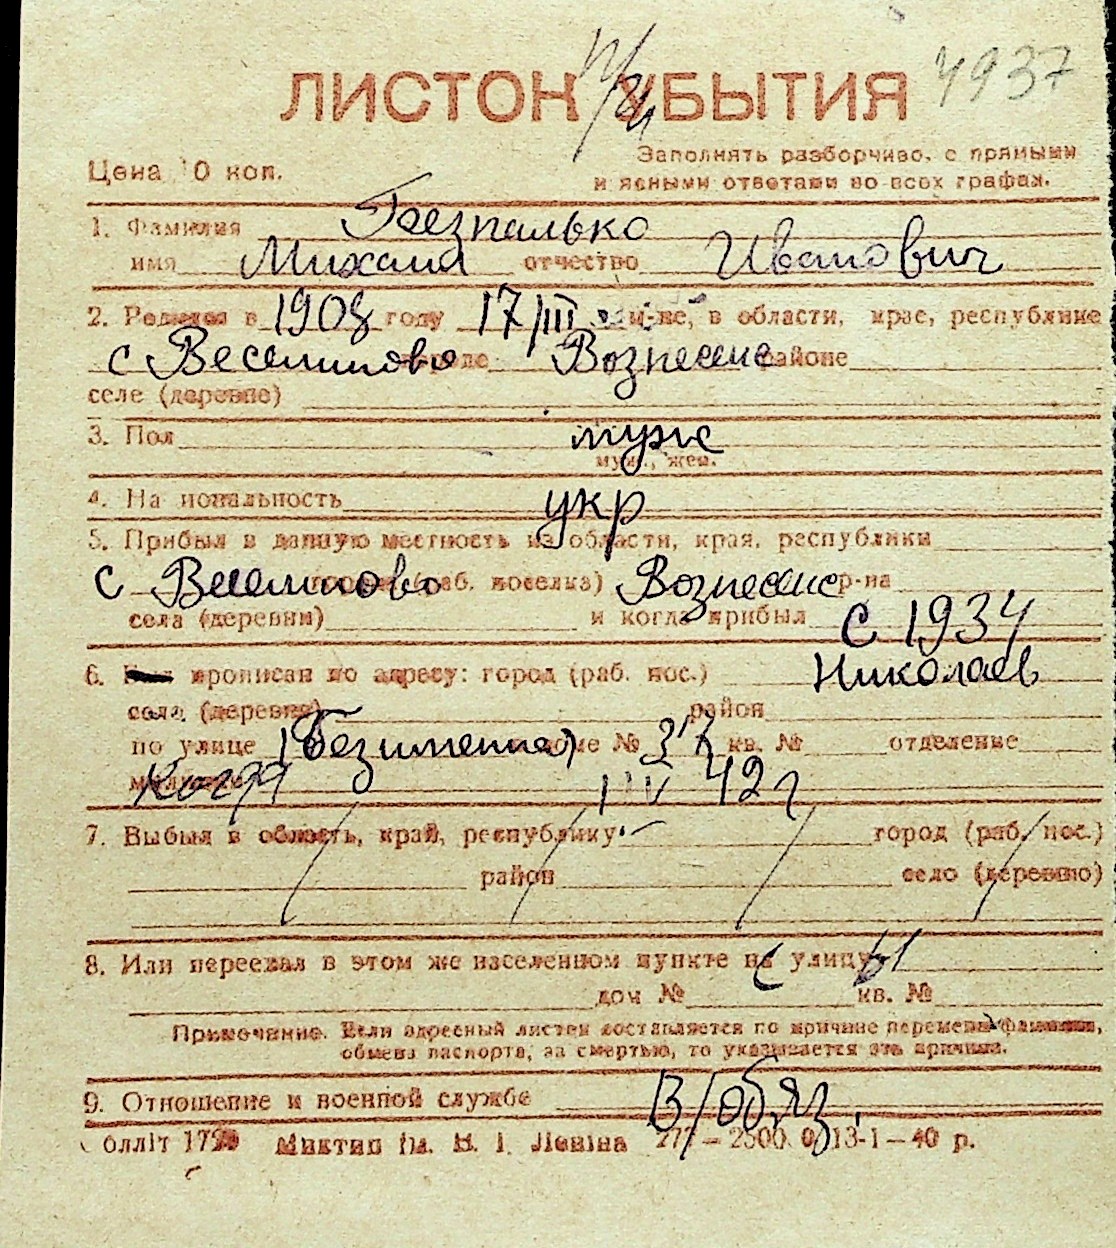 4937
ЛИСТОК УБЫТИЯ
Цена 10 коп.
Заполнять разборчиво, с прямыми
и ясными ответами во всех графах.
1. Фамилия Безпалько
имя Михаил отчество Иванович
2. Родился в 1908 году 17/III м-це, в области, крае, республике
с Веселиново городе Вознесенс районе
селе (деревне)
3. Пол муж
муж., жен.
4. Национальность укр
5. Прибыл в данную местность из области, края, республики
с Веселиново города (раб. поселка) Вознесенс р-на
села (деревни) и когда прибыл с 1934
6. прописан по адресу: город (раб. пос.) Николаев
село (деревня) район
по улице Безименная доме № 37 кв. № отделение
милиции Когда IV 42 г
7. Выбыл в область, край, республику город (раб. пос.)
район село (деревню)
8. Или переехал в этом же населенном пункте на улицу
дом № кв. №
Примечание. Если адресный листок составляется по причине перемены фамилии,
обмена паспорта, за смертью, то указывается эта причина.
9. Отношение к военной службе В/обяз.
олліт 17 Миктип ім. В. І. Леніна 277—2500 0 13-1—40 р.